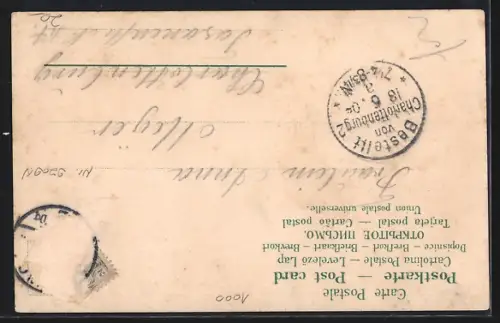 Carte Postale
Postkarte — Post card
Cartolina Postale — Levelező Lap
Dopisnice — Brefkort — Briefkaart — Brevkort
ОТКРЫТОЕ ПИСЬМО.
Tarjeta postal — Cartão postal
Union postale universelle.
Fräulein Anna
Meyer
Charlottenburg
Bestellt
von
Charlottenburg 2
18 6
7¼-8½N
1000
20